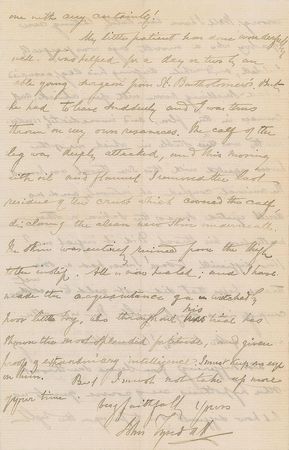 one with any certainty!
My little patient has done wonderfully
well. I was helped for a day or two by an
able young surgeon from St. Bartholomew's. But
he had to leave suddenly and I was thus
thrown on my own resources. The calf of the
leg was deeply attacked, and this morning
with oil and flannel I removed the last
residue of the crust which covered the calf
disclosing the clean new skin underneath.
The skin was entirely ruined from the thigh
to the instep. All is now healed; and I have
made the acquaintance of a wretchedly
poor little boy, who throughout his trial has
shown the most splendid fortitude, and given
proofs of extraordinary intelligence. I must keep an eye
on him. But I must not take up more
of your time
Very faithfully Yours
John Tyndall